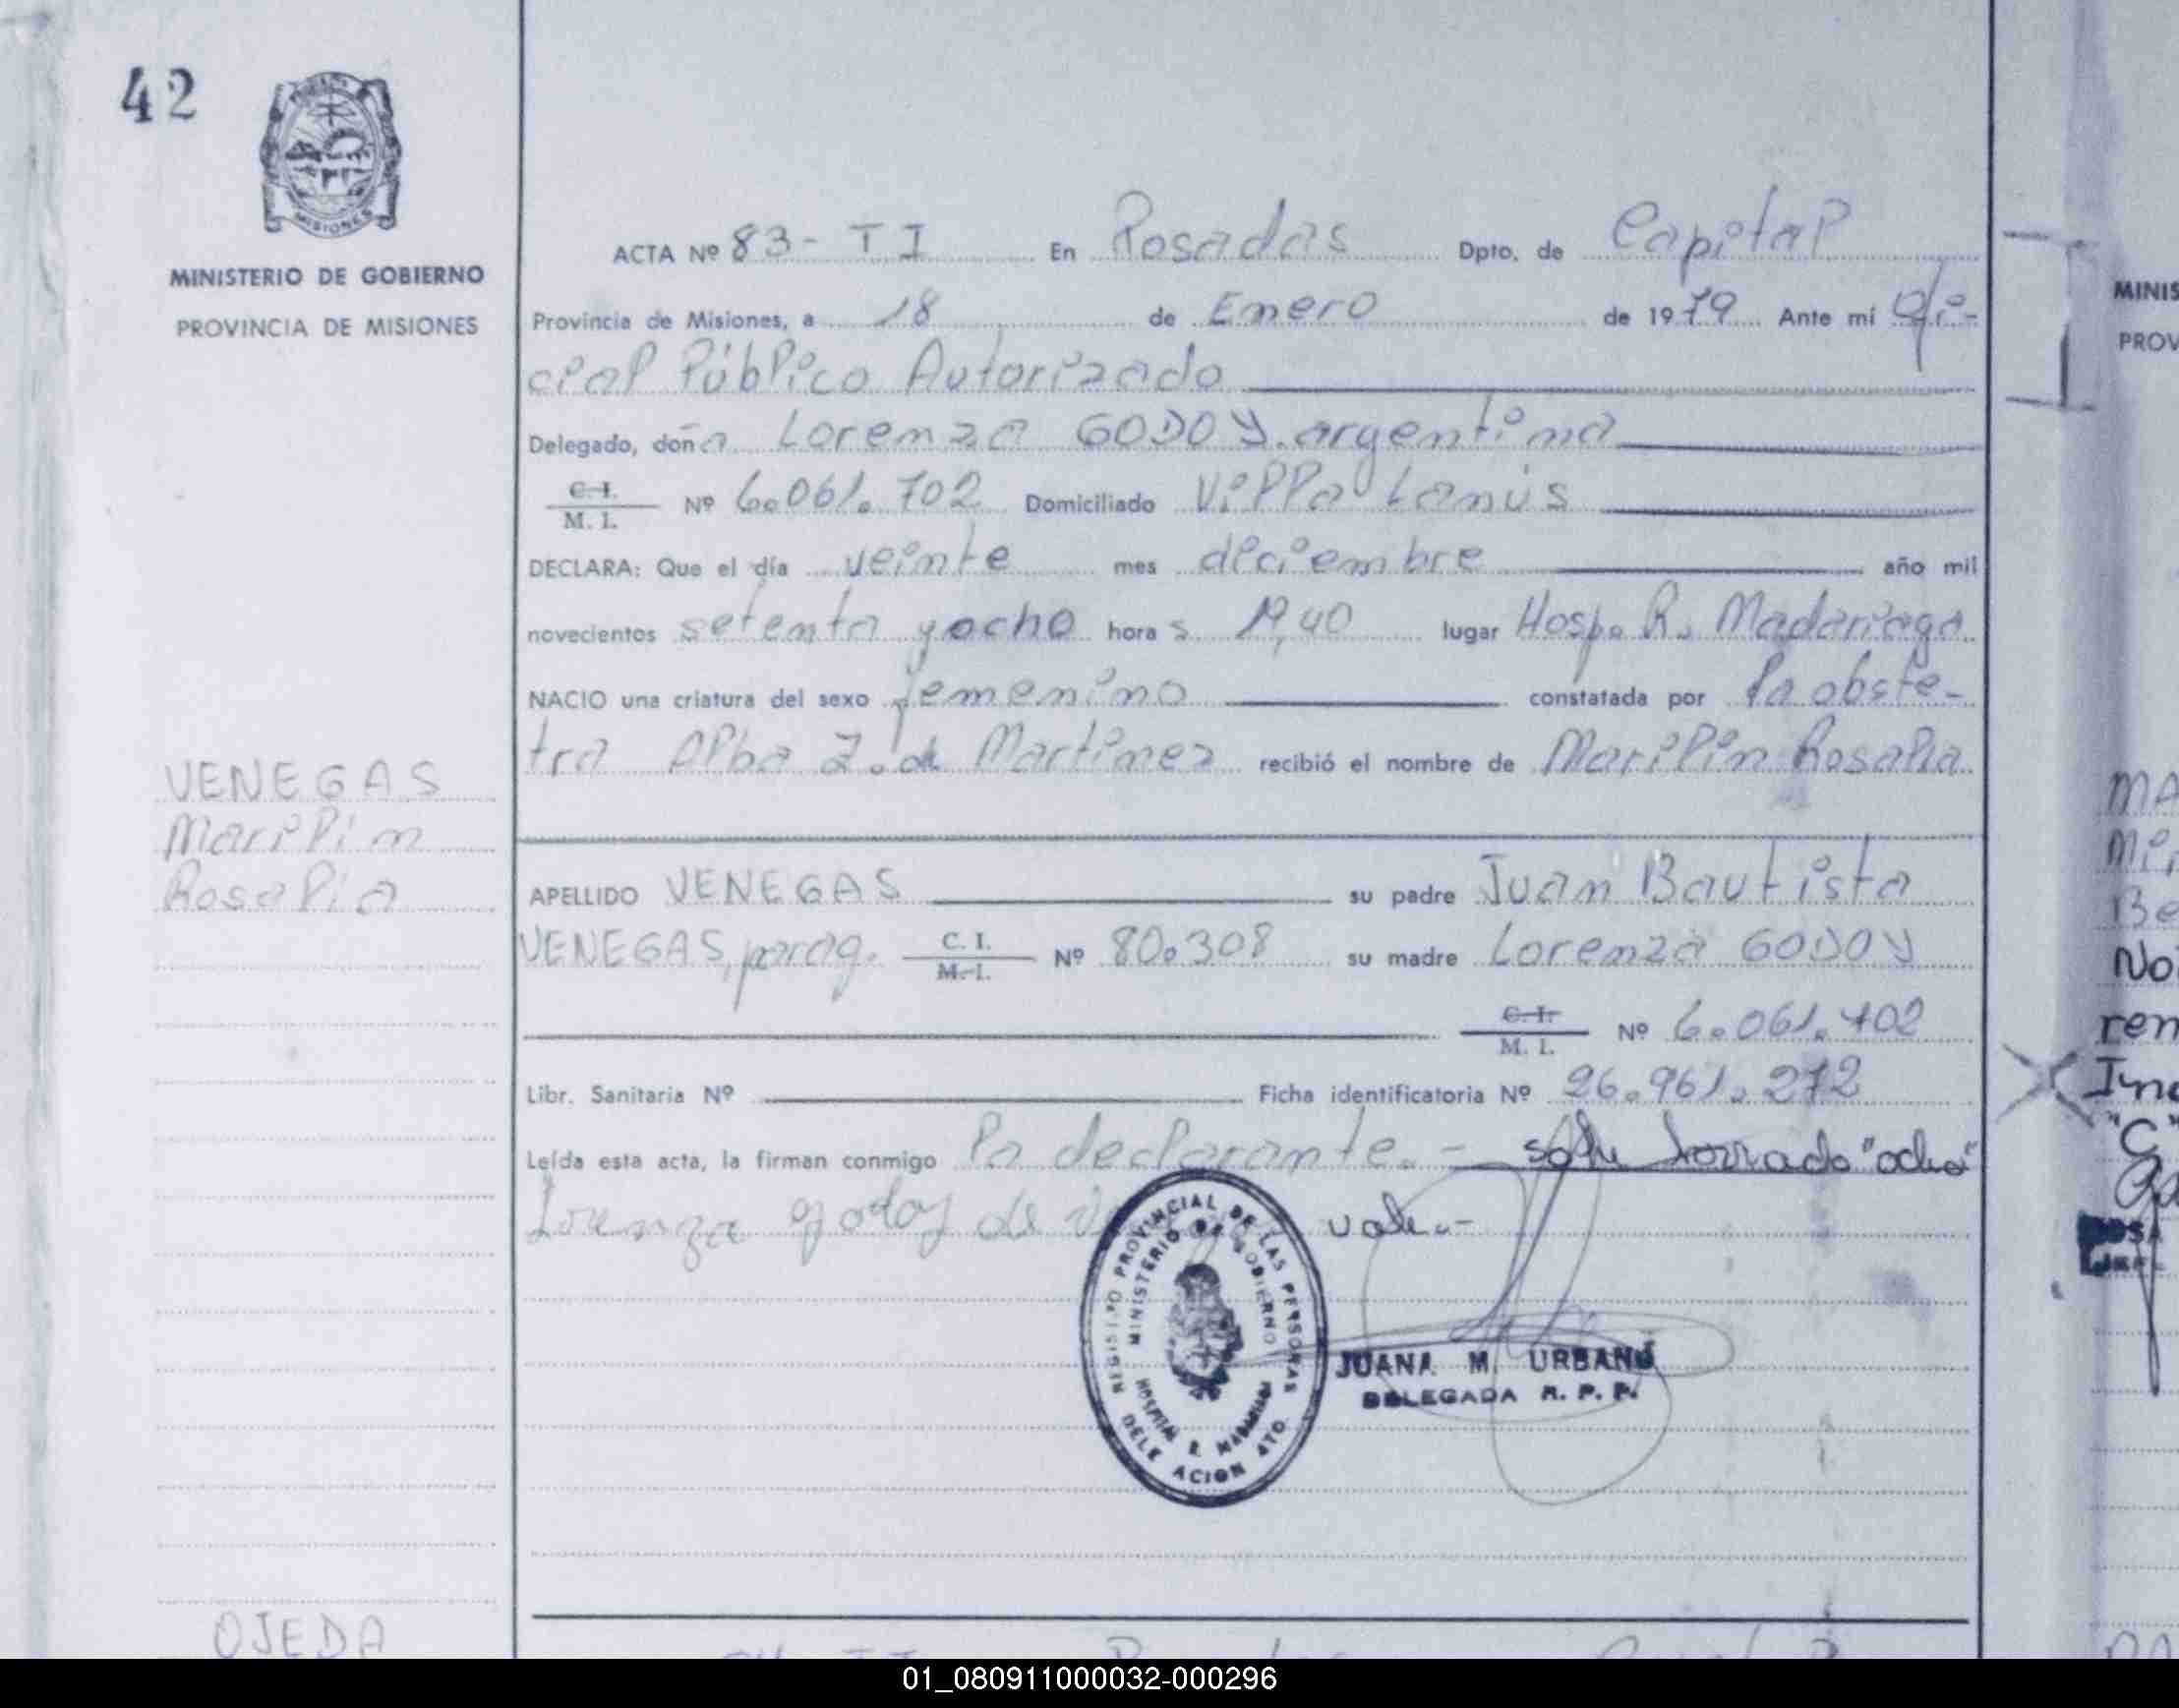 42
MISIONES
MINISTERIO DE GOBIERNO
PROVINCIA DE MISIONES
VENEGAS
Marilin
Rosalia
OJEDA
ACTA Nº 83- T I En Posadas Dpto. de Capital
Provincia de Misiones, a 18 de Enero de 1979 Ante mí Ofi-
cial Público Autorizado
Delegado, doña Lorenza GODOY. argentina
C.I.
M. I.
Nº 6.061.702 Domiciliado Villa Lanús
DECLARA: Que el día veinte mes diciembre año mil
novecientos setenta y ocho hora s 19,40 lugar Hosp. R. Madariaga
NACIO una criatura del sexo femenino constatada por la obste-
tra Alba Z. de Martinez recibió el nombre de Marilin Rosalia
APELLIDO VENEGAS su padre Juan Bautista
VENEGAS, parag. C. I. Nº 80.308 su madre Lorenza GODOY
M.I.
C.I.
M. I.
Nº 6.061.702
Libr. Sanitaria Nº Ficha identificatoria Nº 26.961.272
Leída esta acta, la firman conmigo la declarante.- sobre borrado "ocho"
Lorenza godoy de vale.-
REGISTRO PROVINCIAL DE LAS PERSONAS
MINISTERIO DE GOBIERNO
HOSPITAL R. MADARIAGA
JUANA M. URBANO
DELEGADA R. P. P.
MINIS
PROV
MA
Be
No
ren
"C"
01_080911000032-000296